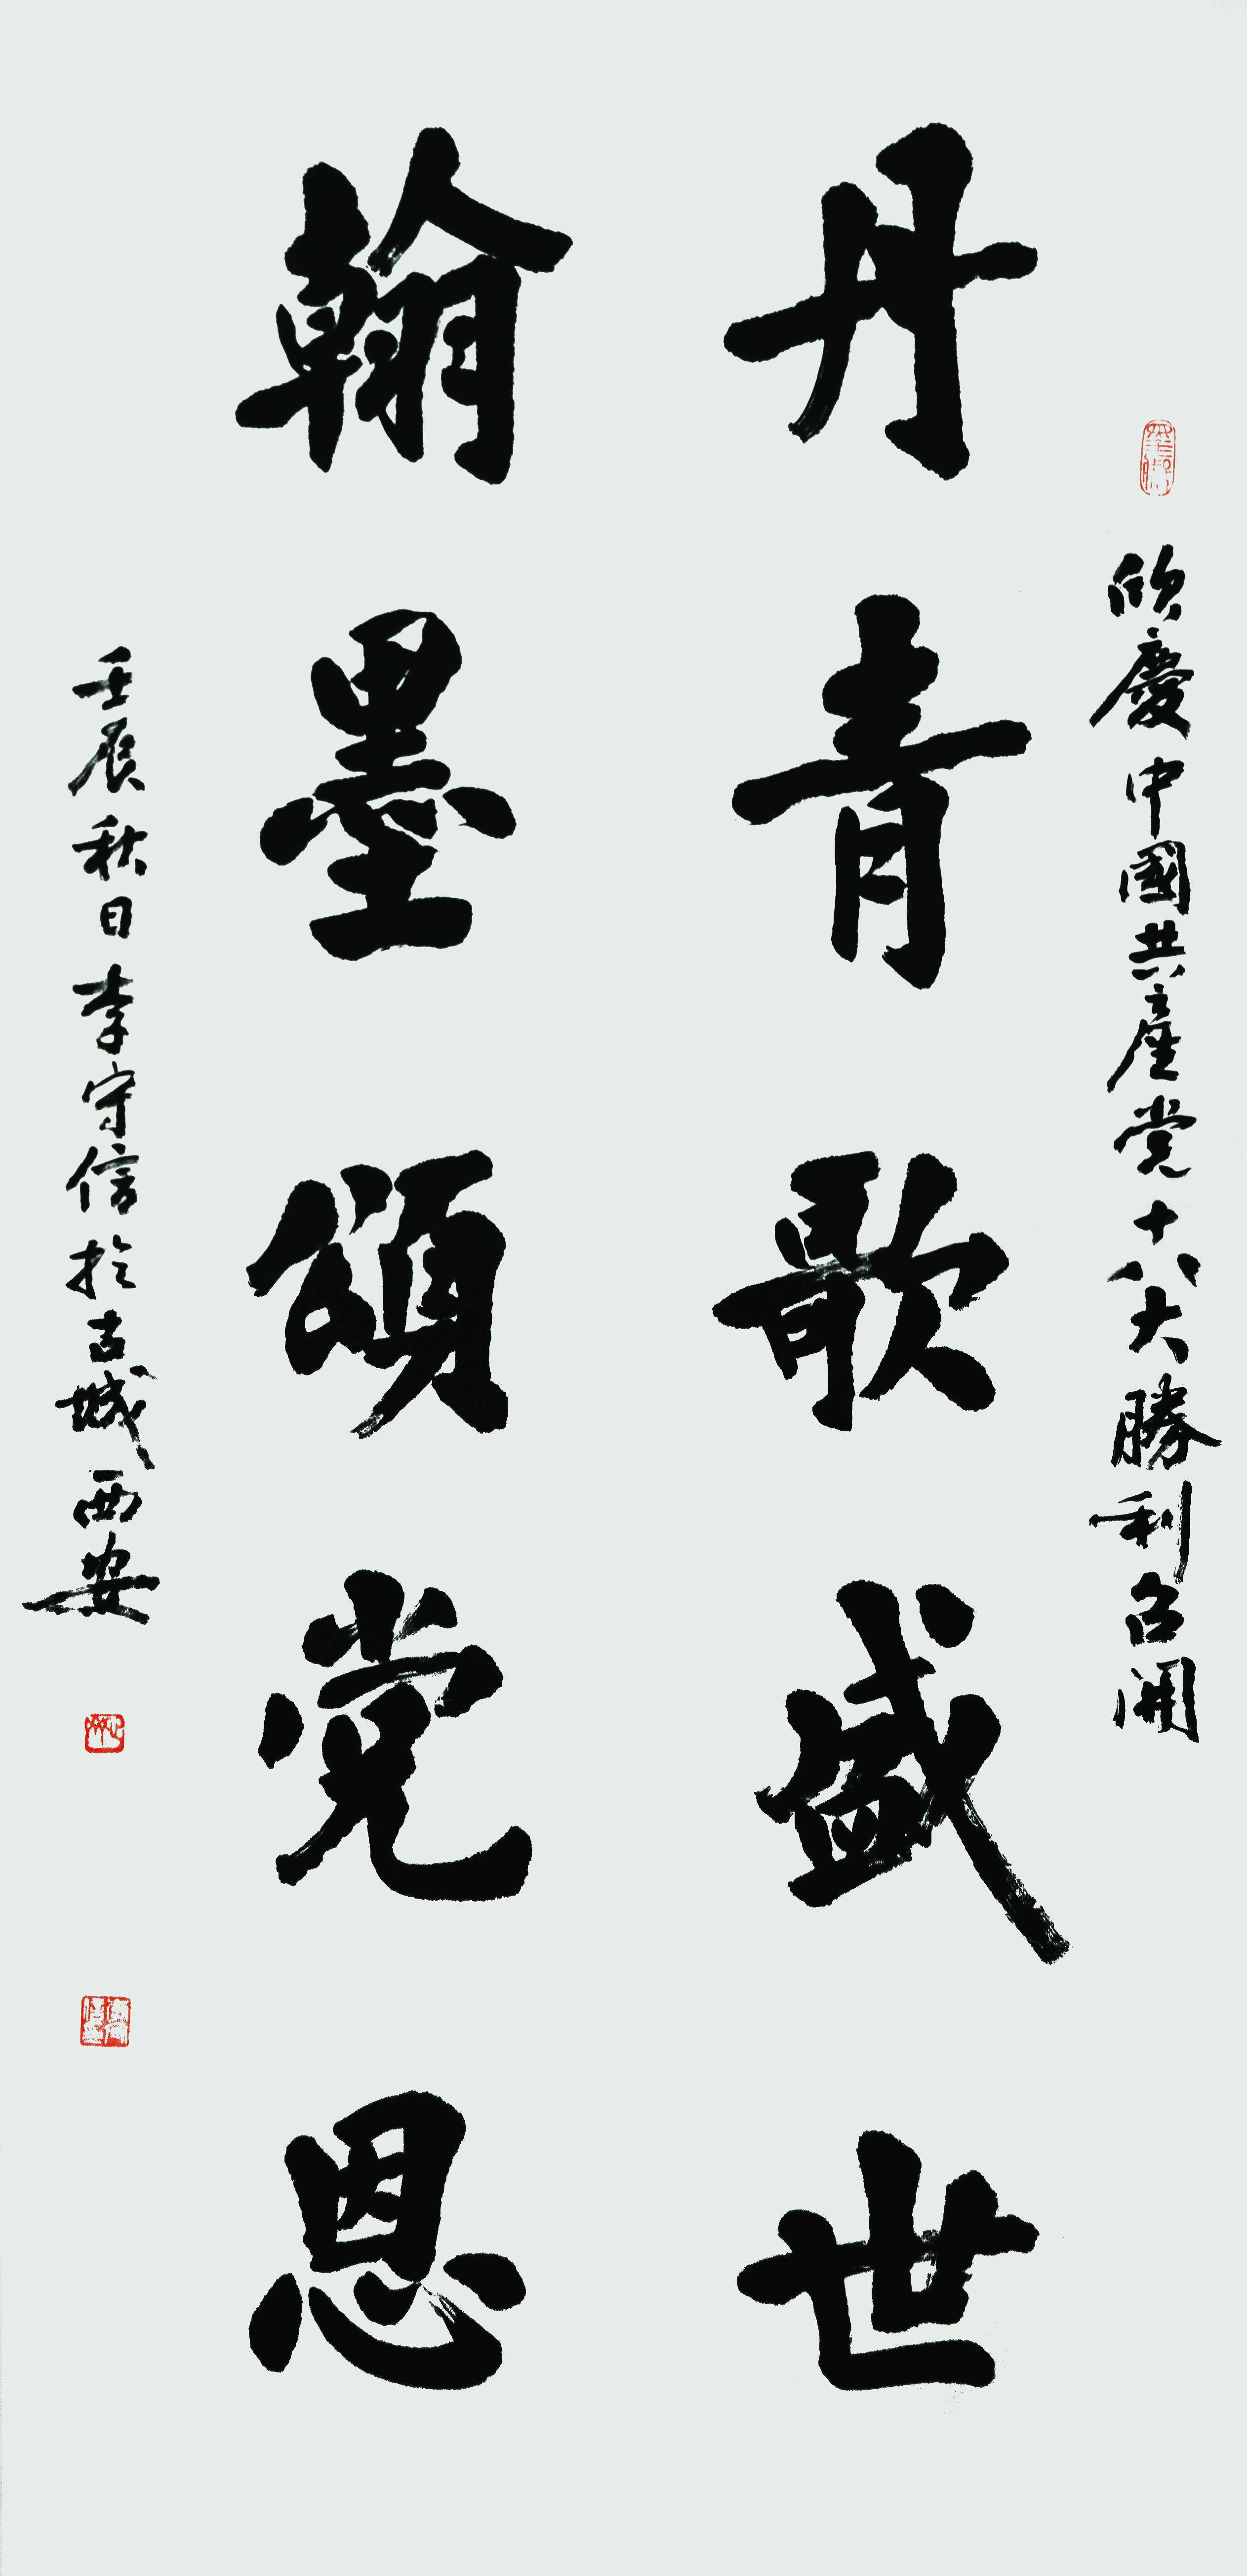 欣慶中國共產党十八大勝利召開
丹青歌盛世
翰墨頌党恩
壬辰秋日李守信於古城西安